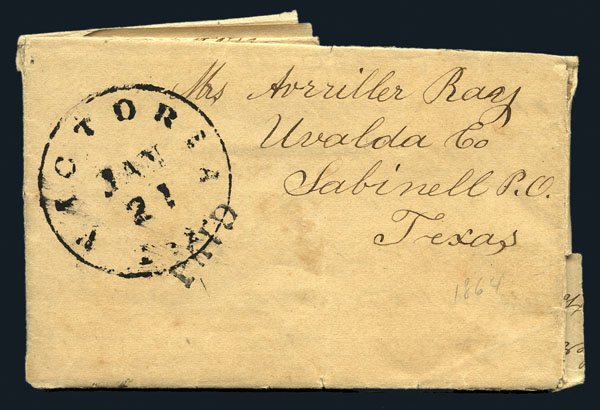 VICTORIA
JAN
21
PAID
Mrs Avrriller Ray
Uvalda Co
Sabinell P.O.
Texas
1864